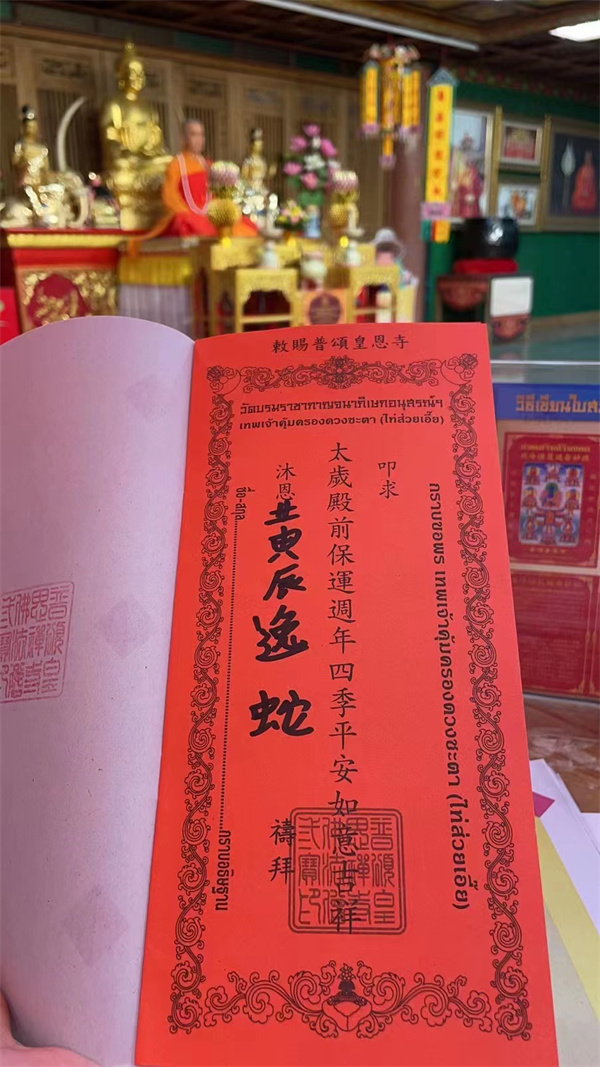 敕賜普頌皇恩寺
วัดบรมราชากาญจนาภิเษกอนุสรณ์ฯ
เทพเจ้าคุ้มครองดวงชะตา (ไท่ส่วยเอี๊ย)
กราบขอพร เทพเจ้าคุ้มครองดวงชะตา (ไท่ส่วยเอี๊ย)
叩求
太歲殿前保運週年四季平安如意吉祥
沐恩
庚辰逸
蛇
禱拜
ชื่อ-สกุล
กราบอธิษฐาน
วิธีเขียนใบ